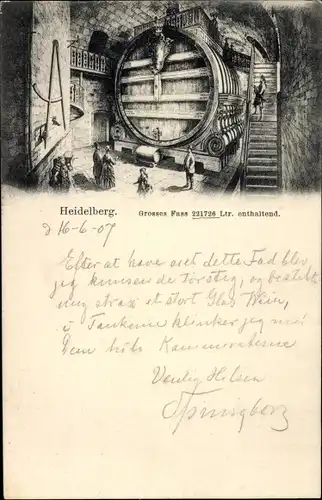 Heidelberg. Grosses Fass 221726 Ltr. enthaltend.
d 16-6-07
Efter at have set dette Fad blev
jeg kunsende Törstig, og bestilte
mig strax et stort Glas Wein,
i Tankerne klinker jeg med
Dem
Venlig Hilsen